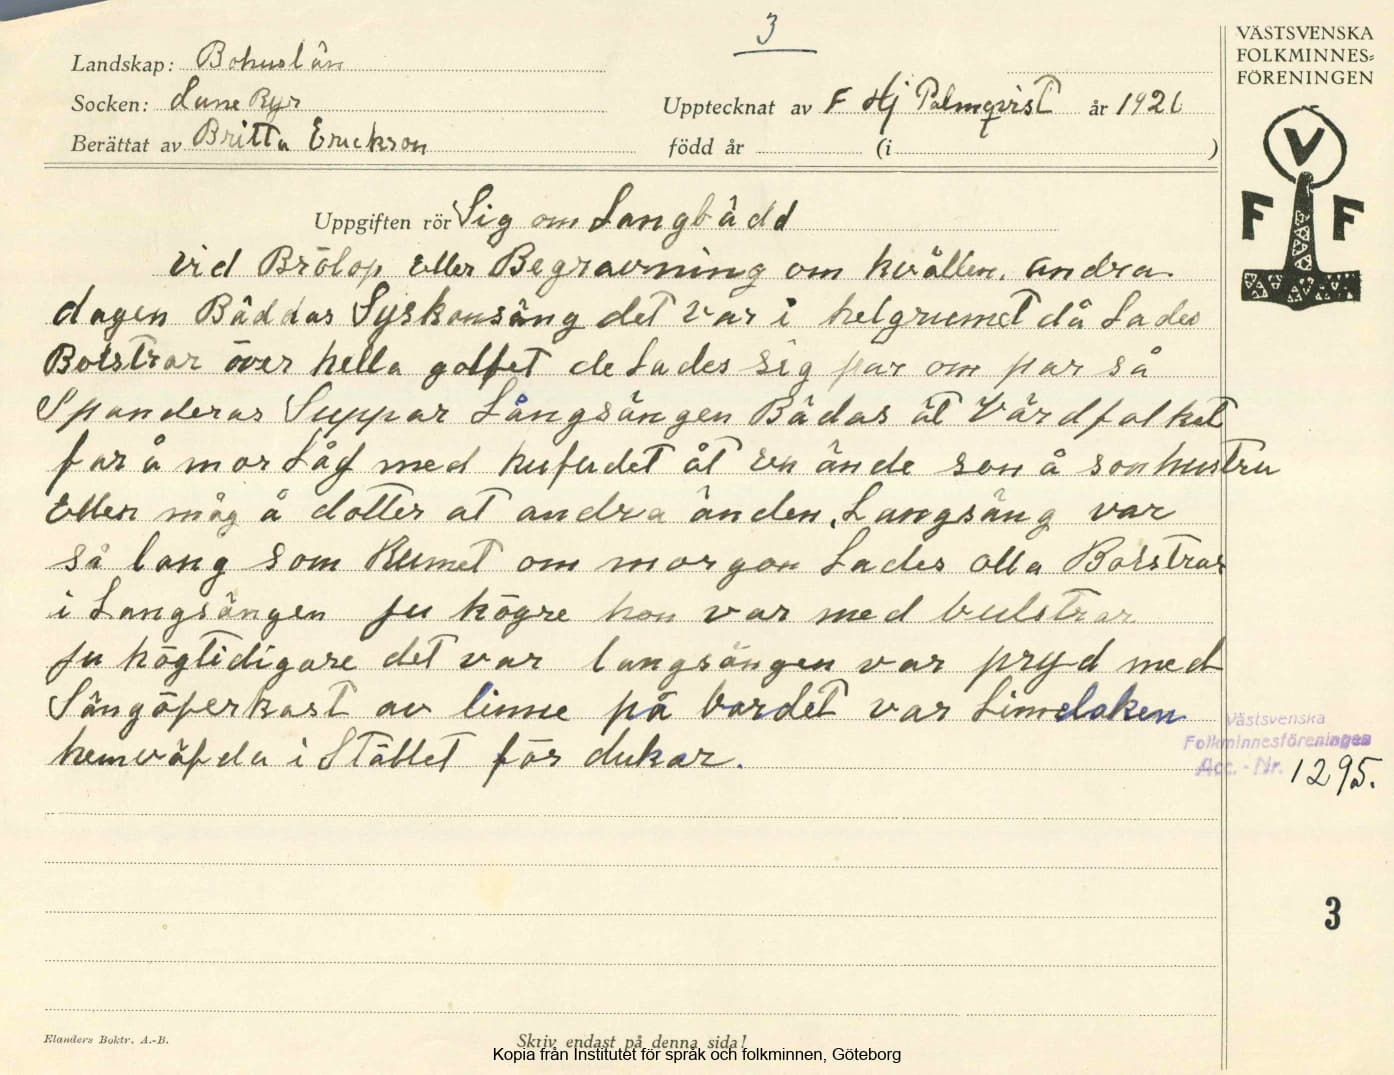 3
VÄSTSVENSKA
FOLKMINNES-
FÖRENINGEN
Landskap: Bohuslän
Socken: Lane Ryr
Upptecknat av F Hj Palmqvist år 1926
Berättat av Britta Erickson
född år (i )
V
F F
Uppgiften rör Sig om Langbädd
vid Brölop Eller Begravning om kvällen. andra
dagen Bäddas Syskonsäng det var i helgrumet då Lades
Bolstrar över hella golfet de Lades sig par om par så
Spanderas Suppar Långsängen Bädas åt Värdfolket
far å mor Låg med hufudet åt en ände son å sonhustru
Eller måg å dotter at andra änden. Langsäng var
så lang som Rumet om morgon Lades alla Bolstrar
i Langsängen ju högre hon var med bulstrar
ju högtidigare det var langsängen var pryd med
Sängöferkast av linne på bordet var Limelaken
hemväfda i Stället för dukar.
Västsvenska
Folkminnesföreningen
Acc.-Nr. 1295.
3
Elanders Boktr. A.-B.
Skriv endast på denna sida!
Kopia från Institutet för språk och folkminnen, Göteborg